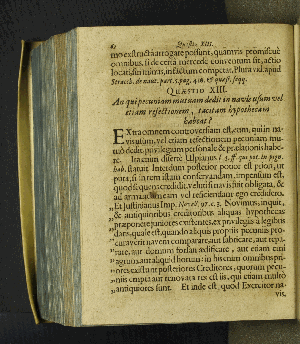 Quæstio XIII.
mo exstructâ arrogare possunt, quamvis promiscuè
omnibus, si de certa mercede conventum sit, actio
locati in nautis, infictum competat. Plura vid. apud
Strach. de naut. part. 3. pag. 416. & quæs. seqq.
QUÆSTIO XIII.
An qui pecuniam mutuam dedit in navis usum vel
etiam refectionem, tacitam hypothecam
habeat?
EXtra omnem controversiam est, eum, qui in na-
vis usum, vel etiam refectionem pecuniam mu-
tuò dedit, privilegium personale & prælationis habe-
re. Item disertè Ulpianus l. 5. ff. qui pot. in pign.
hab. statuit Interdum posterior potior est priori, ut
puta, si in rem istam conservandam, impensum est,
quod sequens credidit, veluti si navis fuit obligata, &
ad armandam eam vel reficiendam ego credidero.
Et Justinianus Imp. Novell. 97. c. 3. Novimus, inquit,
& antiquioribus creditoribus aliquas hypothecas
præponere juniores existentes, ex privilegiis a legibus
datis, quale est, quando aliquis propriis pecuniis pro-
curaverit navem comparare aut fabricare, aut repa-
rare, aut domum forsan ædificare, aut etiam emi
agrum aut aliquid horum: in his enim omnibus pri-
ores existunt posteriores Creditores, quorum pecu-
niis empta aut renovata res est iis, qui etiam multò
antiquiores sunt. Et inde est, quod Exercitor na-
vis,